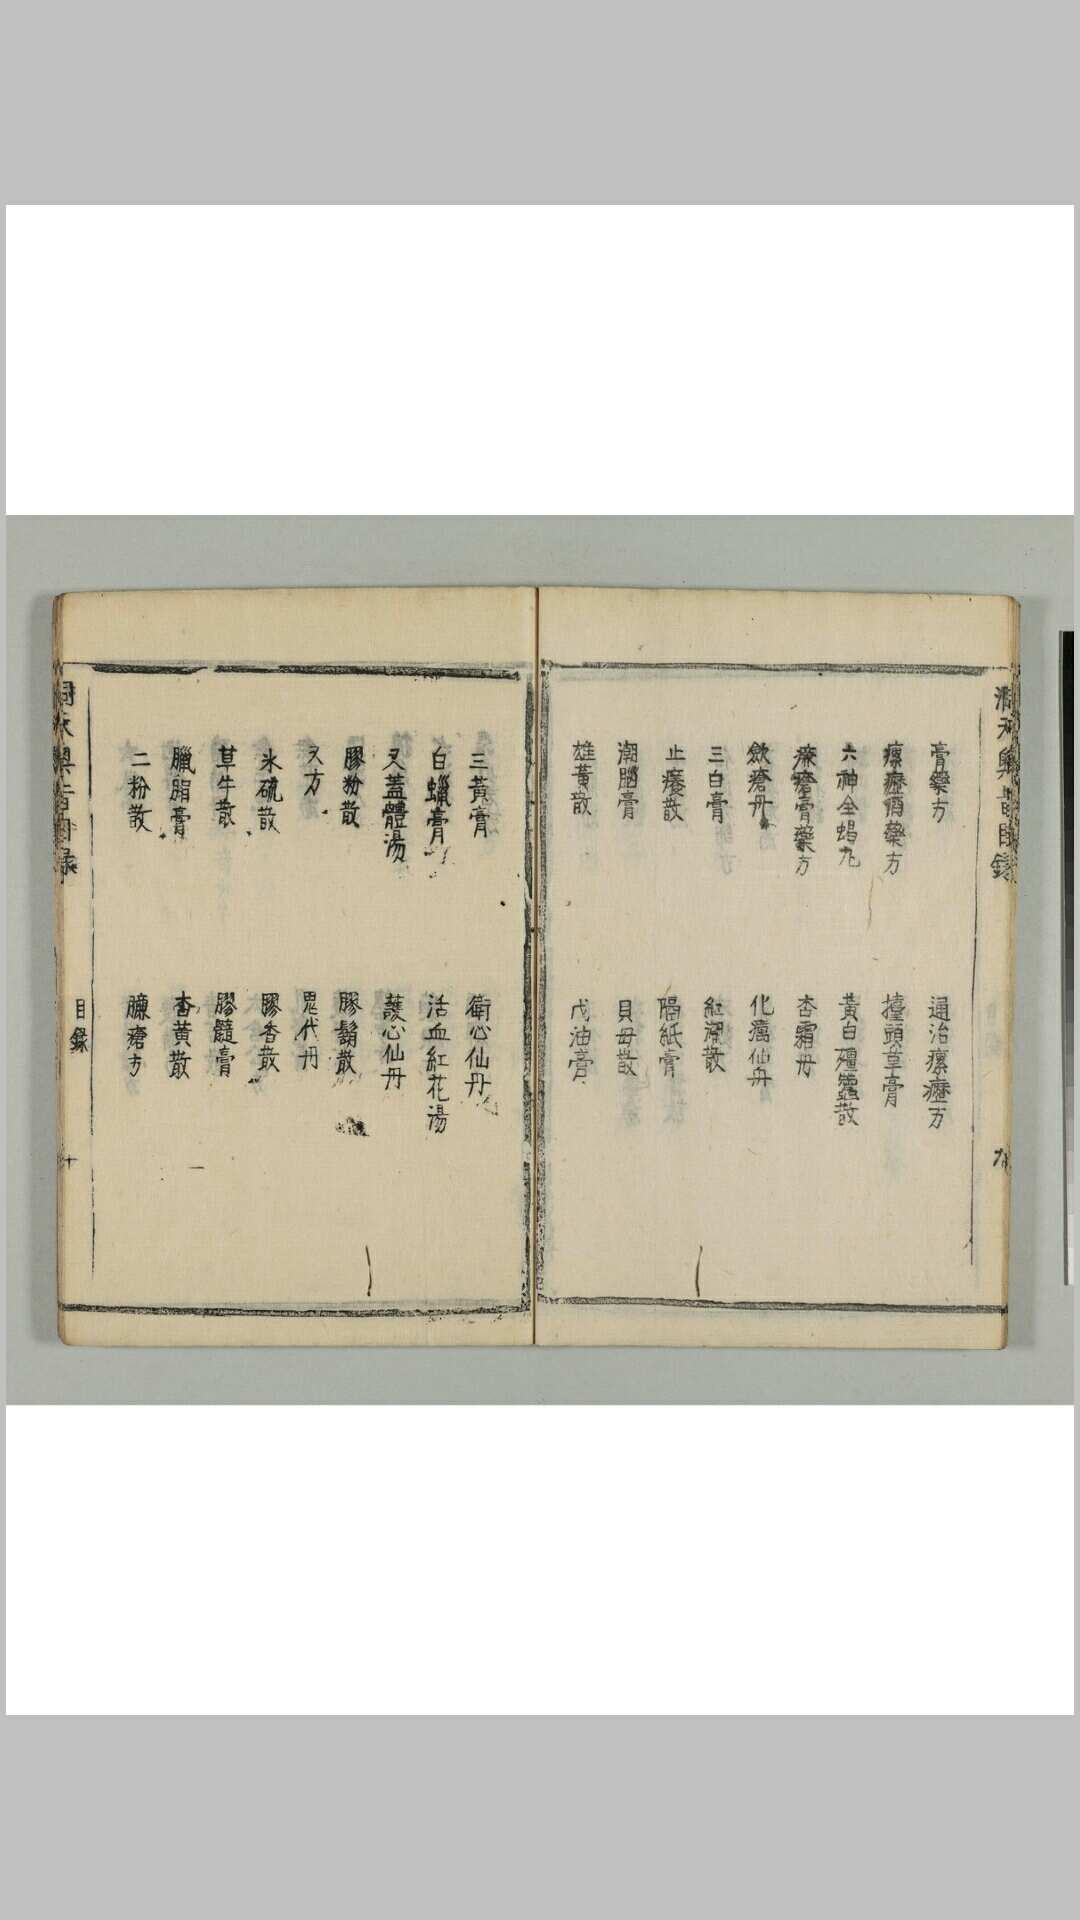 膏藥方
通治瘰癧方
瘰癧酒藥方
擡頭草膏
六神全蝎丸
黃白殭蠶散
瘰瘡膏藥方
杏霜丹
斂瘡丹
化癘仙丹
三白膏
紅濯散
止癢散
隔紙膏
潮腦膏
貝母散
雄黃散
戊油膏
三黃膏
衛心仙丹
白蠟膏
活血紅花湯
又蓋體湯
護心仙丹
膠粉散
膠鬚散
又方
毘代丹
氷硫散
膠香散
草牛散
膠髓膏
臘脂膏
杏黃散
二粉散
臁瘡方
目錄
十